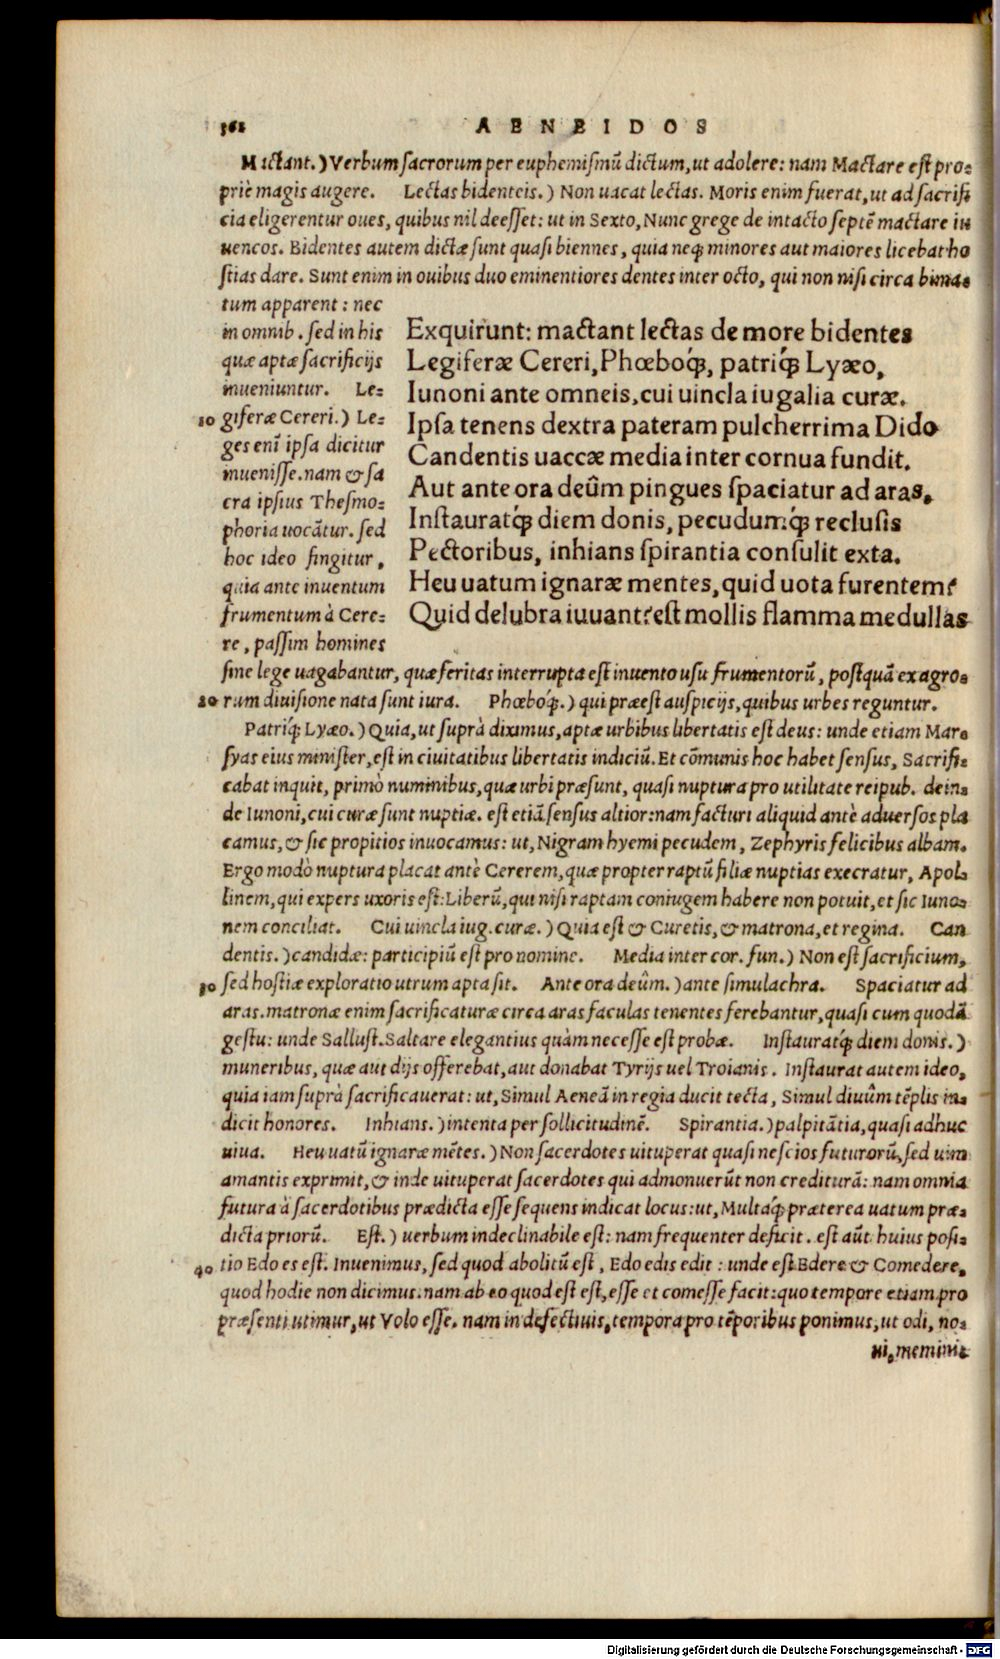 362 AENEIDOS
Mactant.) Verbum sacrorum per euphemismũ dictum, ut adolere: nam Mactare est pro=
priè magis augere. Lectas bidenteis.) Non uacat lectas. Moris enim fuerat, ut ad sacrifi
cia eligerentur oues, quibus nil deesset: ut in Sexto, Nunc grege de intacto septẽ mactare iu
uencos. Bidentes autem dictæ sunt quasi biennes, quia neq; minores aut maiores licebat ho
stias dare. Sunt enim in ouibus duo eminentiores dentes inter octo, qui non nisi circa bima=
tum apparent: nec
in omnib. sed in his
quæ aptæ sacrificijs
inueniuntur. Le=
10 giferæ Cereri.) Le=
ges enĩ ipsa dicitur
inuenisse. nam & sa
cra ipsius Thesmo=
phoria uocãtur. sed
hoc ideo fingitur,
quia ante inuentum
frumentum à Cere=
re, passim homines
Exquirunt: mactant lectas de more bidentes
Legiferæ Cereri, Phœboq́;, patriq́; Lyæo,
Iunoni ante omneis, cui uincla iugalia curæ.
Ipsa tenens dextra pateram pulcherrima Dido
Candentis uaccæ media inter cornua fundit.
Aut ante ora deûm pingues spaciatur ad aras,
Instauratq́; diem donis, pecudumq́; reclusis
Pectoribus, inhians spirantia consulit exta.
Heu uatum ignaræ mentes, quid uota furentem?
Quid delubra iuuant? est mollis flamma medullas
sine lege uagabantur, quæ feritas interrupta est inuento usu frumentorũ, postquã ex agro=
20 rum diuisione nata sunt iura. Phœboq́;.) qui præest auspicijs, quibus urbes reguntur.
Patriq́; Lyæo.) Quia, ut suprà diximus, aptæ urbibus libertatis est deus: unde etiam Mar=
syas eius minister, est in ciuitatibus libertatis indiciũ. Et cõmunis hoc habet sensus, Sacrifi=
cabat inquit, primò numinibus, quæ urbi præsunt, quasi nuptura pro utilitate reipub. dein=
de Iunoni, cui curæ sunt nuptiæ. est etiã sensus altior: nam facturi aliquid antè aduersos pla
camus, & sic propitios inuocamus: ut, Nigram hyemi pecudem, Zephyris felicibus albam.
Ergo modò nuptura placat antè Cererem, quæ propter raptũ filiæ nuptias execratur, Apol=
linem, qui expers uxoris est: Liberũ, qui nisi raptam coniugem habere non potuit, et sic Iuno=
nem conciliat. Cui uincla iug. curæ.) Quia est & Curetis, & matrona, et regina. Can
dentis.) candidæ: participiũ est pro nomine. Media inter cor. fun.) Non est sacrificium,
30 sed hostiæ exploratio utrum apta sit. Ante ora deûm.) ante simulachra. Spaciatur ad
aras. matronæ enim sacrificaturæ circa aras faculas tenentes ferebantur, quasi cum quodã
gestu: unde Sallust. Saltare elegantius quàm necesse est probæ. Instauratq́; diem donis.)
muneribus, quæ aut dijs offerebat, aut donabat Tyrijs uel Troianis. Instaurat autem ideo,
quia iam suprà sacrificauerat: ut, Simul Aeneã in regia ducit tecta, Simul diuûm tẽplis in=
dicit honores. Inhians.) intenta per sollicitudinẽ. Spirantia.) palpitãtia, quasi adhuc
uiua. Heu uatũ ignaræ mẽtes.) Non sacerdotes uituperat quasi nescios futurorũ, sed uim
amantis exprimit, & inde uituperat sacerdotes qui admonuerũt non crediturã: nam omnia
futura à sacerdotibus prædicta esse sequens indicat locus: ut, Multaq́; præterea uatum præ=
dicta priorũ. Est.) uerbum indeclinabile est: nam frequenter deficit. est aũt huius posi=
40 tio Edo es est. Inuenimus, sed quod abolitũ est, Edo edis edit: unde est Edere & Comedere,
quod hodie non dicimus. nam ab eo quod est est, esse et comesse facit: quo tempore etiam pro
præsenti utimur, ut Volo esse. nam in defectiuis, tempora pro tẽporibus ponimus, ut odi, no=
ui, memini=
Digitalisierung gefördert durch die Deutsche Forschungsgemeinschaft - DFG